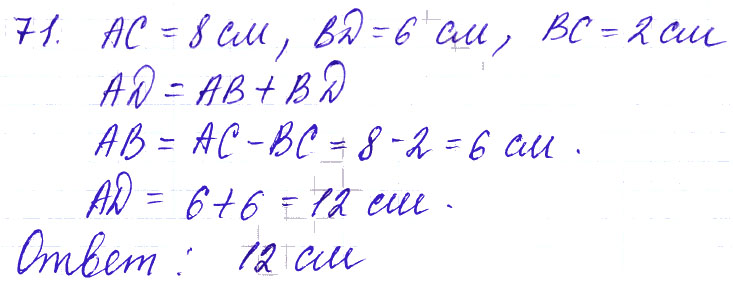 71. AC = 8 см, BD = 6 см, BC = 2 см
AD = AB + BD
AB = AC - BC = 8 - 2 = 6 см.
AD = 6 + 6 = 12 см.
Ответ: 12 см